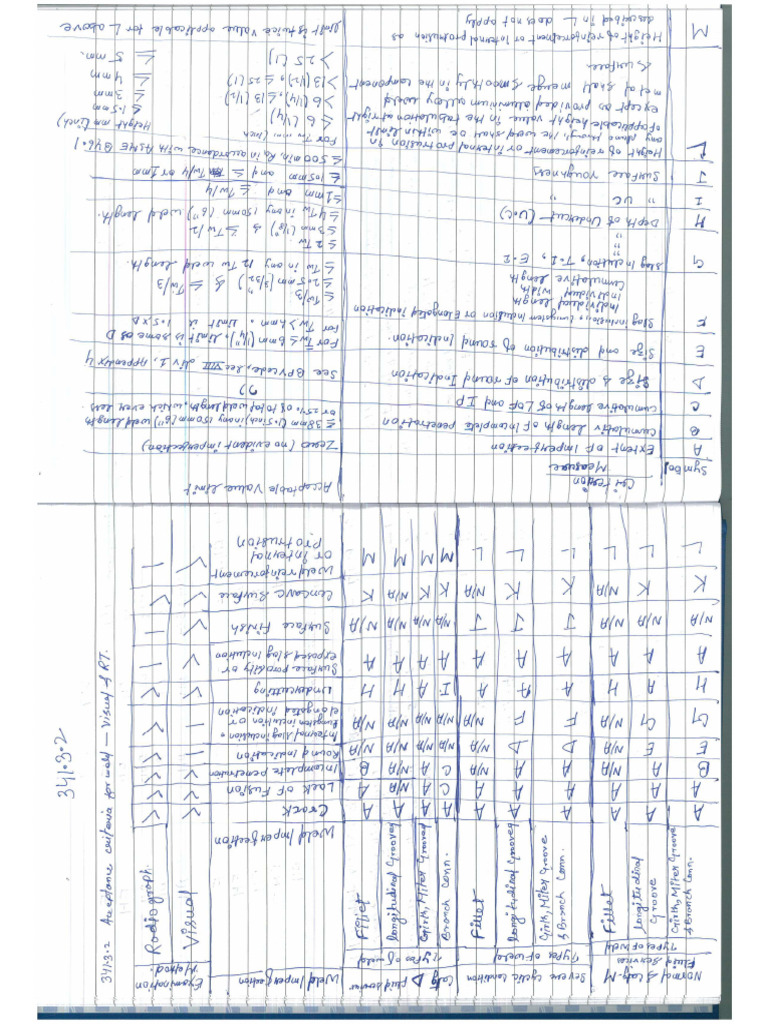 341.3.2
341.3.2 Acceptance criteria for weld — Visual & RT.
Normal & Catg-M Fluid Service
Types of weld
Girth, Miter Groove & Branch Conn.
longitudinal Groove
Fillet
Severe Cyclic Condition
Types of weld
Girth, Miter Groove & Branch Conn.
longitudinal Groove
Fillet
Catg D fluid service
Types of weld
Branch Conn.
Girth, Miter Groove
longitudinal Groove
Fillet
Weld Imperfection
Weld Imperfection
Examination Method
Visual
Radiograph
A A A A A A A A A A Crack ✓ ✓
A A A A A A C A A Lack of Fusion ✓ ✓
B A N/A A A N/A C A N/A B Incomplete penetration ✓ ✓
E E N/A D D N/A N/A N/A N/A N/A Round Indication — ✓
G G N/A F F N/A N/A N/A N/A N/A Internal slag inclusion, tungsten inclusion or elongated Indication — ✓
H A H A A A I H A H Undercutting ✓ ✓
A A A A A A A A A A Surface porosity or exposed slag inclusion ✓ —
N/A N/A N/A J J J N/A N/A N/A N/A Surface Finish ✓ —
K K N/A K K N/A K K N/A Concave Surface ✓ ✓
L L L L L L M M M M Weld reinforcement or internal protrusion ✓ —
Symbol
Criterion Measure
Acceptable Value limit
A Extent of Imperfection
Zero (no evident imperfection)
B Cumulativ length of Incomplete penetration
≤ 38mm (1.5inch) in any 150mm (6") weld length
or 25% of total weld length, which ever less
C Cumulative length of LOF and IP
D Size & distribution of round Indication
See BPV code, sec VIII div 1, Appendix 4
E Size and distribution of round Indication.
For Tw ≤ 6mm (1/4"), limit is same as D
For Tw > 6mm. limit is 1.5 x D
F Slag inclusion, tungsten Inclusion or Elongated Indication
Individual length
Individual width
Cumulative length
≤ Tw/3
≤ 2.5mm (3/32") & ≤ Tw/3
≤ Tw in any 12 Tw weld length.
G Slag Inclusion, T.I, E.I
"
"
≤ 2 Tw
≤ 3mm (1/8") & ≤ Tw/2
≤ 4 Tw in any 150mm (6") weld length.
H Depth of Undercut (U.C)
≤ 1mm and ≤ Tw/4
I " UC "
≤ 1.5mm and ≤ Tw/4 or 1mm
J Surface roughness
≤ 500 min. Ra in accordance with ASME B46.1
L Height of reinforcement or internal protrusion in
any plane through the weld shall be within limit
of applicable height value in the tabulation at right
except as provided aluminium alloy weld
metal shall merge smoothly in the component
surface.
For Tw, mm, inch
Height mm (inch)
≤ 6 (1/4) ≤ 1.5mm
> 6 (1/4), ≤ 13 (1/2) ≤ 3mm
> 13 (1/2), ≤ 25 (1) ≤ 4mm
> 25 (1) ≤ 5mm.
M Height of reinforcement or internal protrusion as
described in L does not apply
limit is twice value applicable for L above